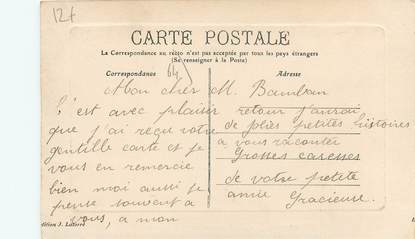 12f
CARTE POSTALE
La Correspondance au recto n'est pas acceptée par tous les pays étrangers
(Se renseigner à la Poste)
Correspondance
Adresse
Mon cher M. Bambou
C'est avec plaisir
que j'ai reçu votre
gentille carte et je
vous en remercie
bien moi aussi je
pense souvent a
vous, a mon
retour j'aurai
de jolies petites histoires
a vous raconter
Grosses caresses
de votre petite
amie Gracieuse.